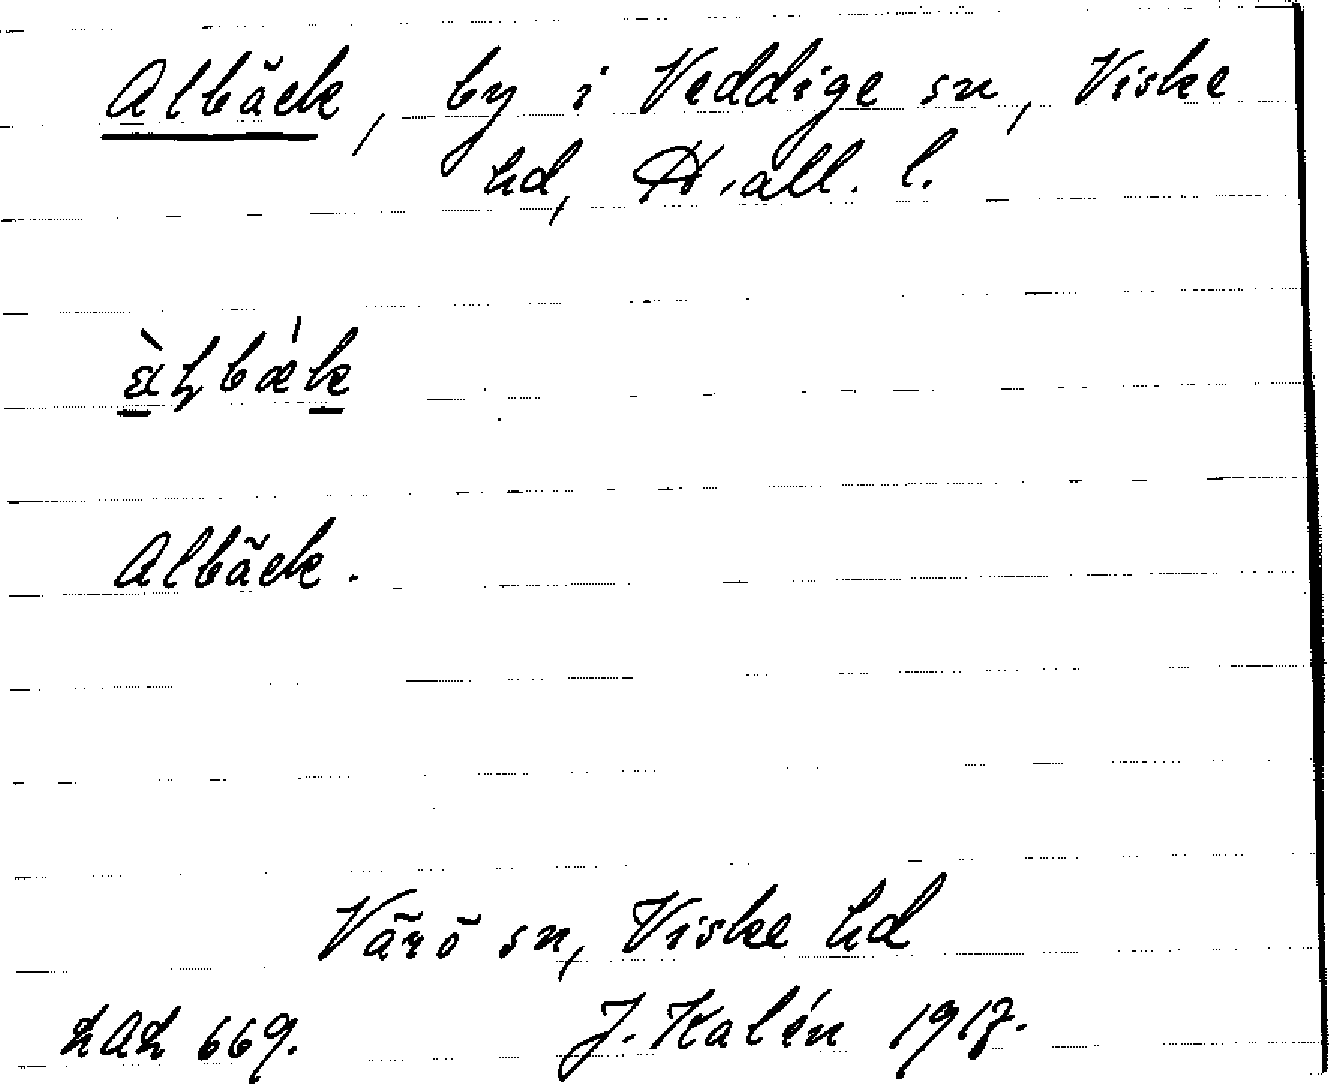 Albäck, by i Veddige sn, Viske
hd, Hall. l.
Albäck.
Värö sn, Viske hd
J. Kalén 1917.